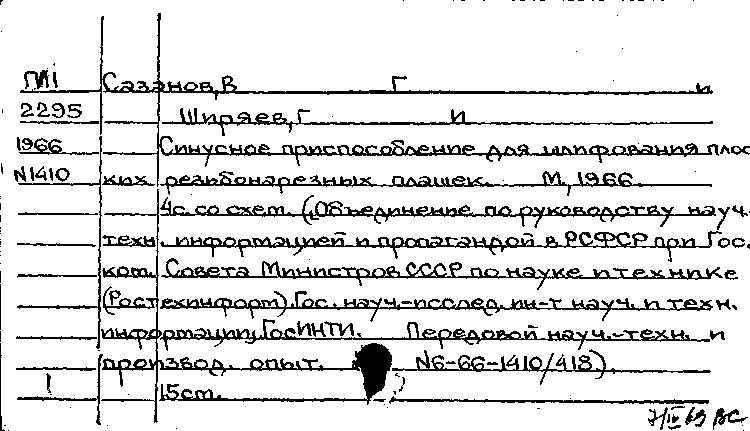 ПИ1 Сазанов, В Г и
2295 Ширяев, Г И
1966 Синусное приспособление для шлифования плос
N1410 ких резьбонарезных плашек. М, 1966.
4с. со схем. („Объединение по руководству науч.
техн. информацией и пропагандой в РСФСР при Гос.
ком. Совета Министров СССР по науке и технике
(Ростехинформ). Гос. науч.-исслед. ин-т науч. и техн.
информации, ГосИНТИ. Передовой науч.-техн. и
производ. опыт. N6-66-1410/418).
1 15 ст.